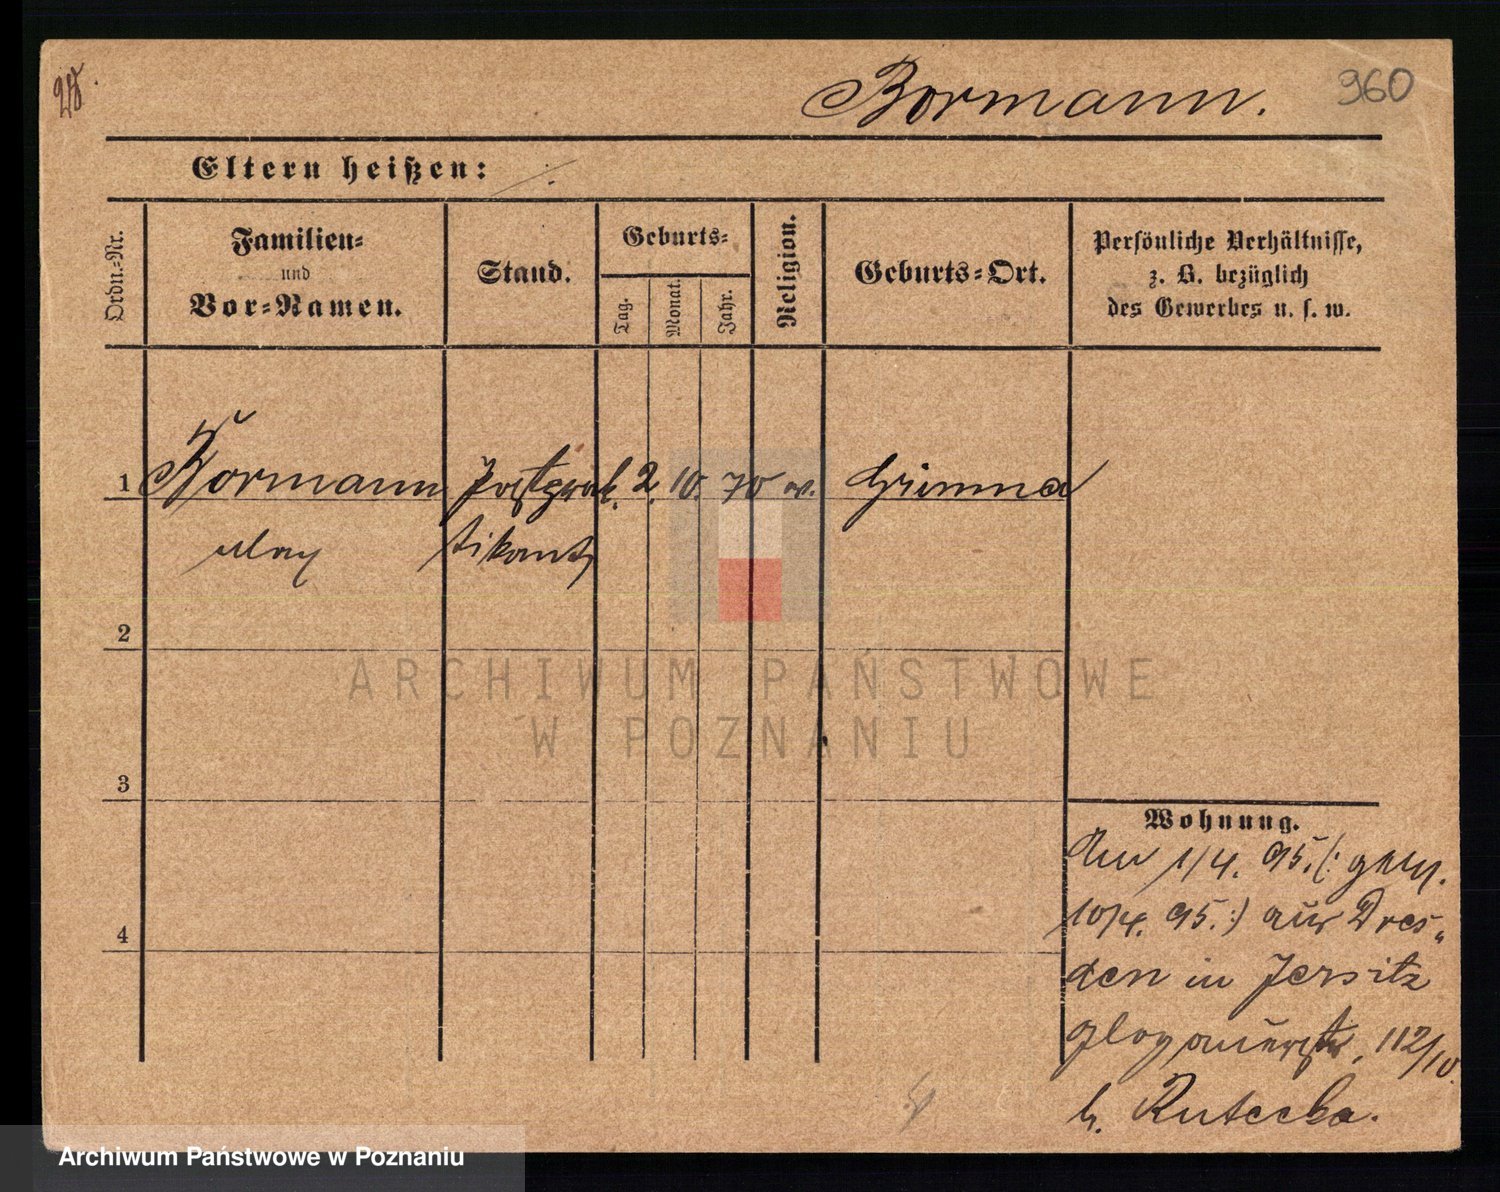 Bormann.
960
Eltern heißen: ./.
Ordn.-Nr.
Familien-
und
Vor-Namen.
Stand.
Geburts-
Tag.
Monat.
Jahr.
Religion.
Geburts-Ort.
Persönliche Verhältnisse,
z. B. bezüglich
des Gewerbes u. s. w.
1 Bormann Postprak- 2. 10. 70 ev. Grimma
Max tikant
2
3
4
ARCHIWUM PAŃSTWOWE
W POZNANIU
Wohnung.
1/4. 95. (: gem.
10/4. 95. :) aus Dres-
den in Jersitz
Glogauerstr. 112/
b. Rutecka.
Archiwum Państwowe w Poznaniu